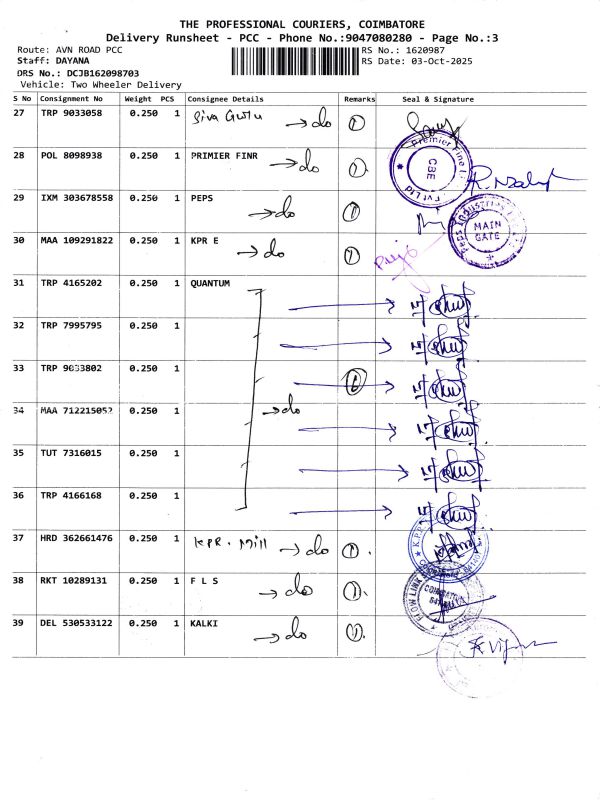 THE PROFESSIONAL COURIERS, COIMBATORE
Delivery Runsheet - PCC - Phone No.:9047080280 - Page No.:3
Route: AVN ROAD PCC RS No.: 1620987
Staff: DAYANA RS Date: 03-Oct-2025
DRS No.: DCJB162098703
Vehicle: Two Wheeler Delivery
S No Consignment No Weight PCS Consignee Details Remarks Seal & Signature
27 TRP 9033058 0.250 1 Siva Guru → do 1
28 POL 8098938 0.250 1 PRIMIER FINR → do 1 Premier Fine Pvt Ltd CBE
29 IXM 303678558 0.250 1 PEPS → do 1 MAIN GATE
30 MAA 109291822 0.250 1 KPR E → do 1
31 TRP 4165202 0.250 1 QUANTUM
32 TRP 7995795 0.250 1
33 TRP 9033802 0.250 1 6
34 MAA 712215052 0.250 1 → do
35 TUT 7316015 0.250 1
36 TRP 4166168 0.250 1
37 HRD 362661476 0.250 1 KPR. Mill → do 1
38 RKT 10289131 0.250 1 F L S → do 1 FLOW LINK
39 DEL 530533122 0.250 1 KALKI → do 1